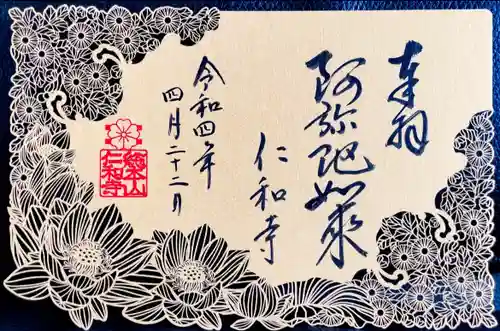 奉拝
阿弥陀如来
仁和寺
令和四年
四月二十二日
總本山
仁和寺